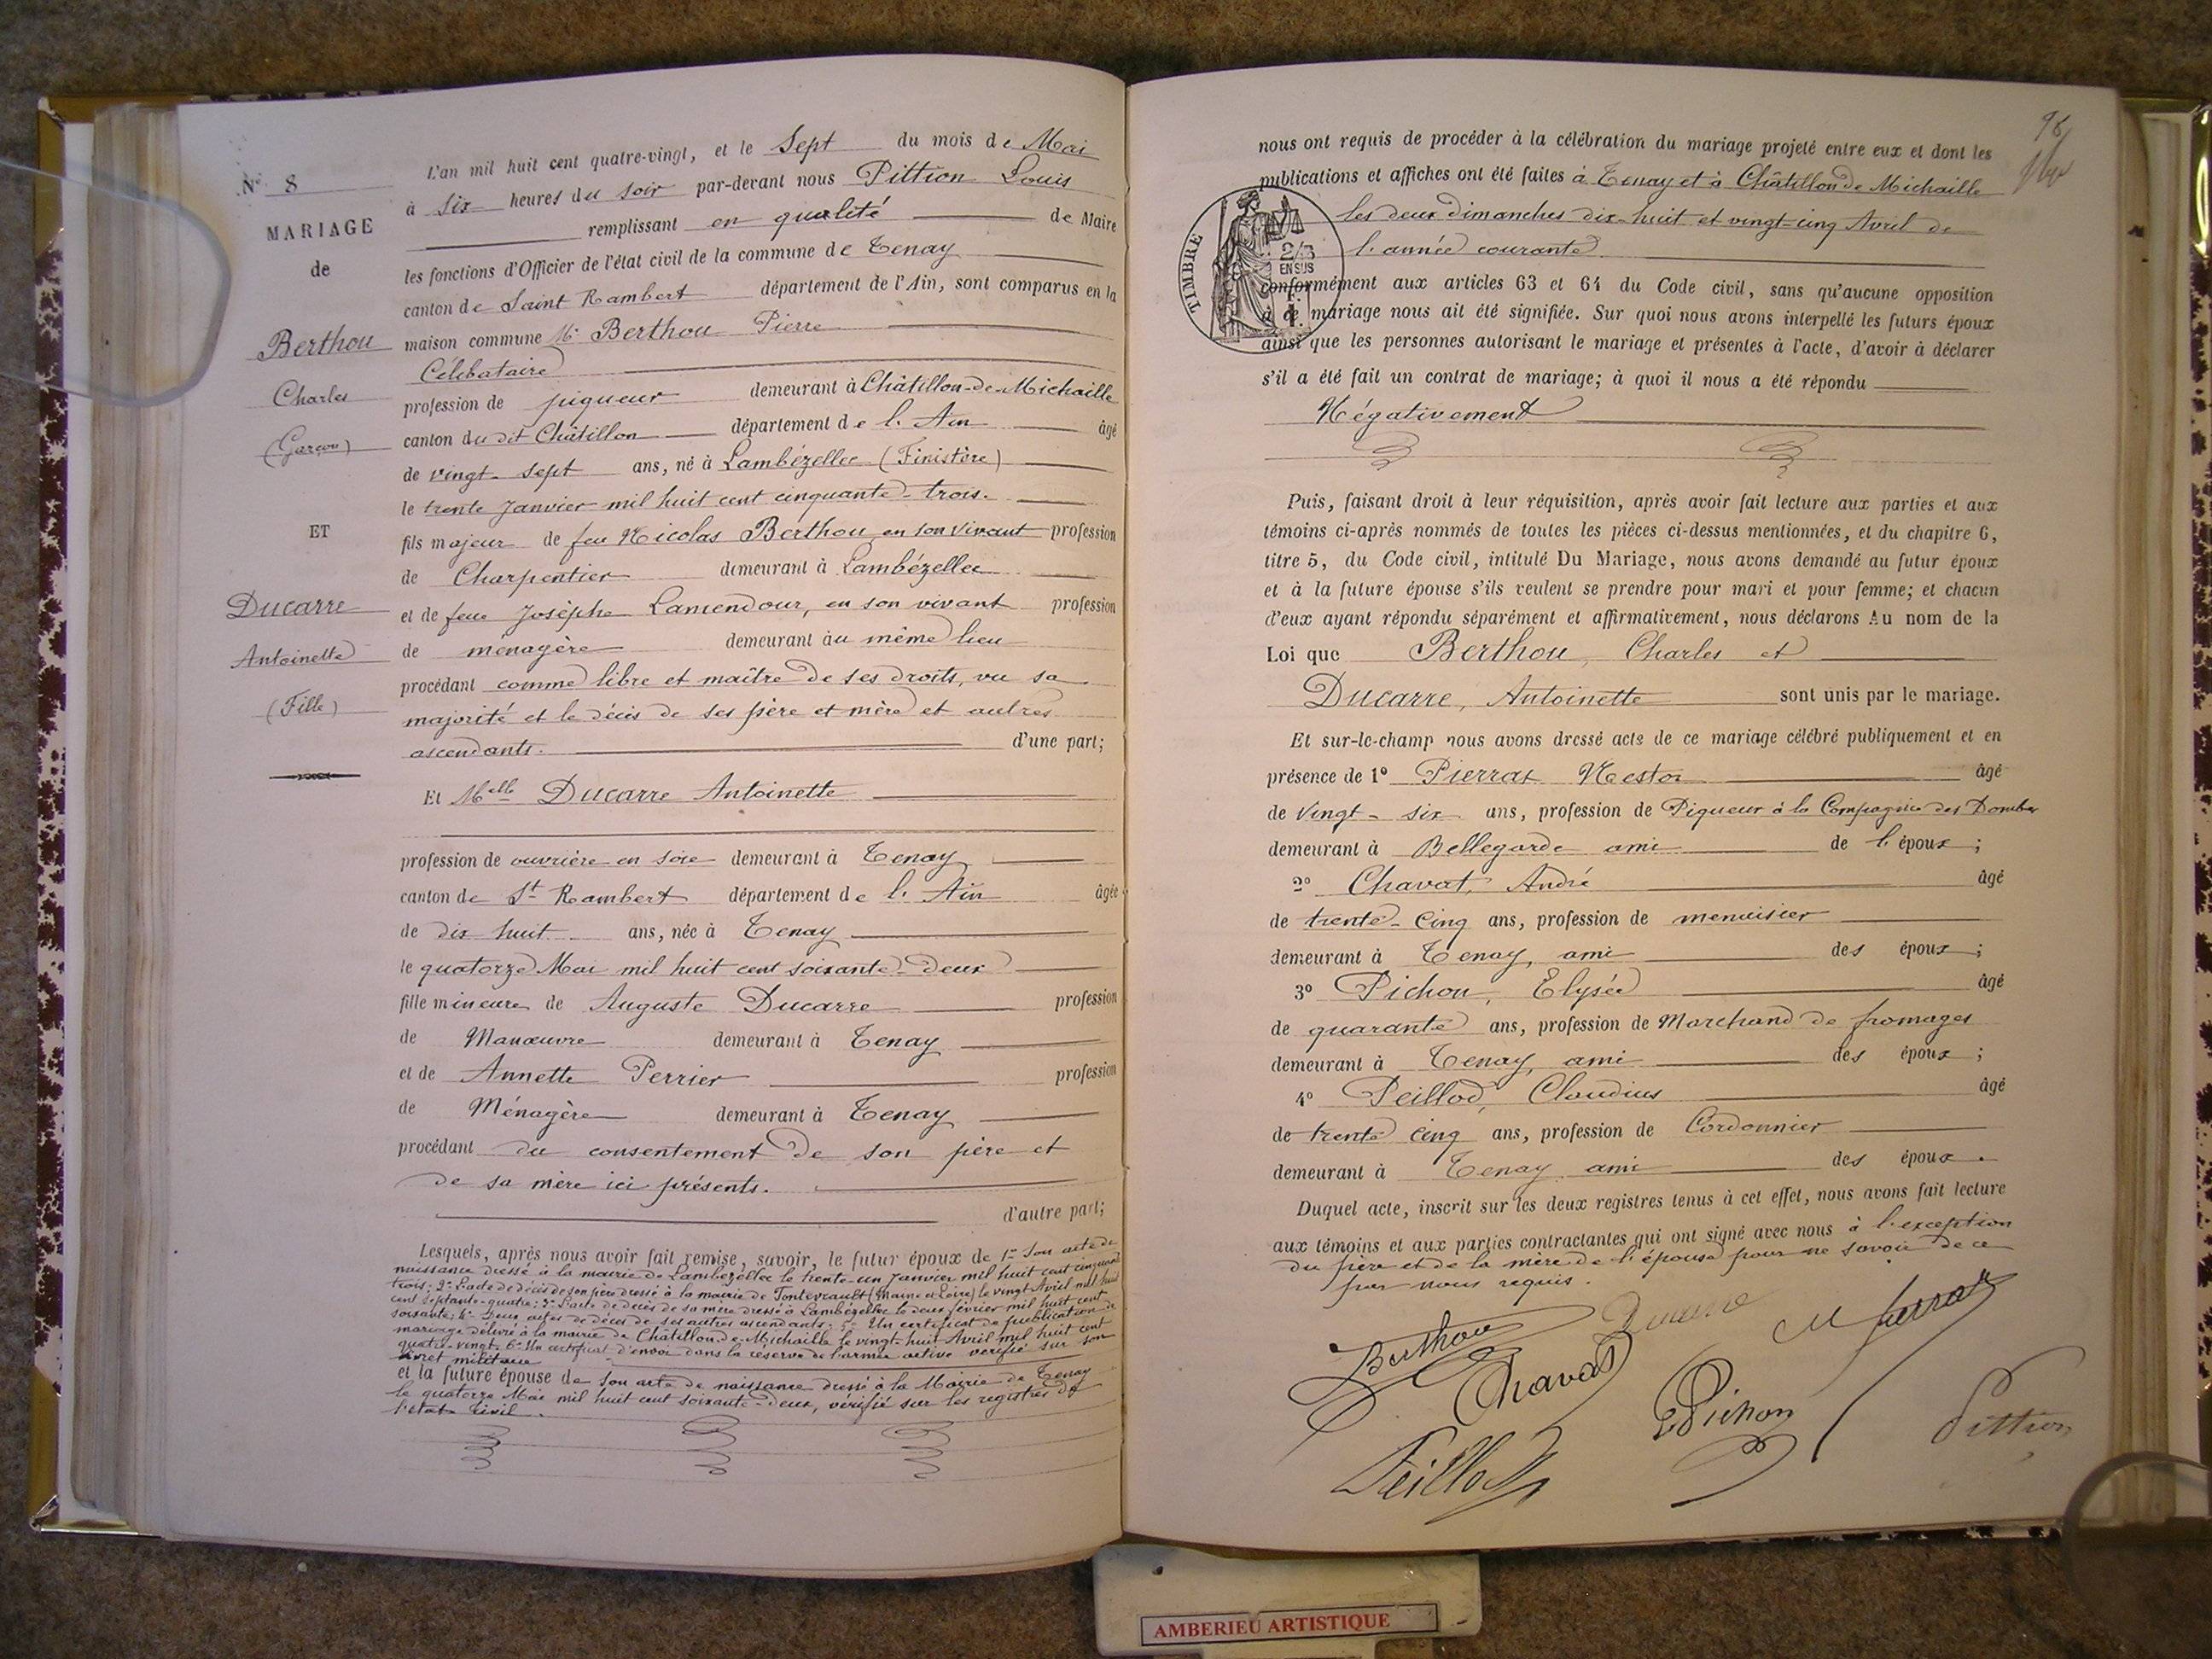 N° 8
MARIAGE
de
Berthou
Charles
(Garçon)
ET
Ducarre
Antoinette
(Fille)
L'an mil huit cent quatre-vingt, et le Sept du mois de Mai
à Six heures du soir par-devant nous Pittion Louis
remplissant en qualité de Maire
les fonctions d'Officier de l'état civil de la commune de Tenay
canton de Saint Rambert département de l'Ain, sont comparus en la
maison commune Mr Berthou Pierre
Célibataire
profession de piqueur demeurant à Châtillon-de-Michaille
canton du dit Châtillon département de l'Ain âgé
de vingt-sept ans, né à Lambézellec (Finistère)
le trente Janvier mil huit cent cinquante-trois.
fils majeur de feu Nicolas Berthou en son vivant profession
de Charpentier demeurant à Lambézellec
et de feue Josèphe Lamendour, en son vivant profession
de ménagère demeurant au même lieu
procédant comme libre et maître de ses droits, vu sa
majorité et le décès de ses père et mère et autres
ascendants. d'une part;
Et Melle Ducarre Antoinette
profession de ouvrière en soie demeurant à Tenay
canton de St Rambert département de l'Ain âgée
de dix huit ans, née à Tenay
le quatorze Mai mil huit cent soixante-deux
fille mineure de Auguste Ducarre profession
de Manœuvre demeurant à Tenay
et de Annette Perrier profession
de Ménagère demeurant à Tenay
procédant du consentement de son père et
de sa mère ici présents.
d'autre part;
Lesquels, après nous avoir fait remise, savoir, le futur époux de 1° Son acte de
naissance dressé à la mairie de Lambézellec le trente-un Janvier mil huit cent cinquante
trois; 2° L'acte de décès de son père dressé à la mairie de Fontevrault (Maine et Loire) le vingt Avril mil huit
cent septante-quatre; 3° L'acte de décès de sa mère dressé à Lambézellec le deux février mil huit cent
soixante; 4° Deux actes de décès de ses autres ascendants; 5° Un certificat de publication de
mariage délivré à la mairie de Châtillon-de-Michaille le vingt-huit Avril mil huit cent
quatre-vingt. 6° Un certificat d'envoi dans la réserve de l'armée active vérifié sur son
livret militaire
et la future épouse de Son acte de naissance dressé à la Mairie de Tenay
le quatorze Mai mil huit cent soixante-deux, vérifié sur les registres de
l'état civil.
98
nous ont requis de procéder à la célébration du mariage projeté entre eux et dont les
publications et affiches ont été faites à Tenay et à Châtillon de Michaille
les deux dimanches dix-huit et vingt-cinq Avril de
l'année courante
TIMBRE
2/5
EN SUS
conformément aux articles 63 et 64 du Code civil, sans qu'aucune opposition
à ce mariage nous ait été signifiée. Sur quoi nous avons interpellé les futurs époux
ainsi que les personnes autorisant le mariage et présentes à l'acte, d'avoir à déclarer
s'il a été fait un contrat de mariage; à quoi il nous a été répondu
Négativement
Puis, faisant droit à leur réquisition, après avoir fait lecture aux parties et aux
témoins ci-après nommés de toutes les pièces ci-dessus mentionnées, et du chapitre 6,
titre 5, du Code civil, intitulé Du Mariage, nous avons demandé au futur époux
et à la future épouse s'ils veulent se prendre pour mari et pour femme; et chacun
d'eux ayant répondu séparément et affirmativement, nous déclarons Au nom de la
Loi que Berthou, Charles et
Ducarre, Antoinette sont unis par le mariage.
Et sur-le-champ nous avons dressé acte de ce mariage célébré publiquement et en
présence de 1° Pierrat Nestor âgé
de vingt-six ans, profession de Piqueur à la Compagnie des Dombes
demeurant à Bellegarde ami de l'époux;
2° Chavat, André âgé
de trente-cinq ans, profession de menuisier
demeurant à Tenay, ami des époux;
3° Pichon, Elysée âgé
de quarante ans, profession de Marchand de fromages
demeurant à Tenay, ami des époux;
4° Peillod, Claudius âgé
de trente cinq ans, profession de Cordonnier
demeurant à Tenay ami des époux.
Duquel acte, inscrit sur les deux registres tenus à cet effet, nous avons fait lecture
aux témoins et aux parties contractantes qui ont signé avec nous à l'exception
du père et de la mère de l'épouse pour ne savoir de ce
par nous requis.
Berthou Ducarre N Pierrat
Chavat E Pichon Pittion
Peillod
AMBERIEU ARTISTIQUE